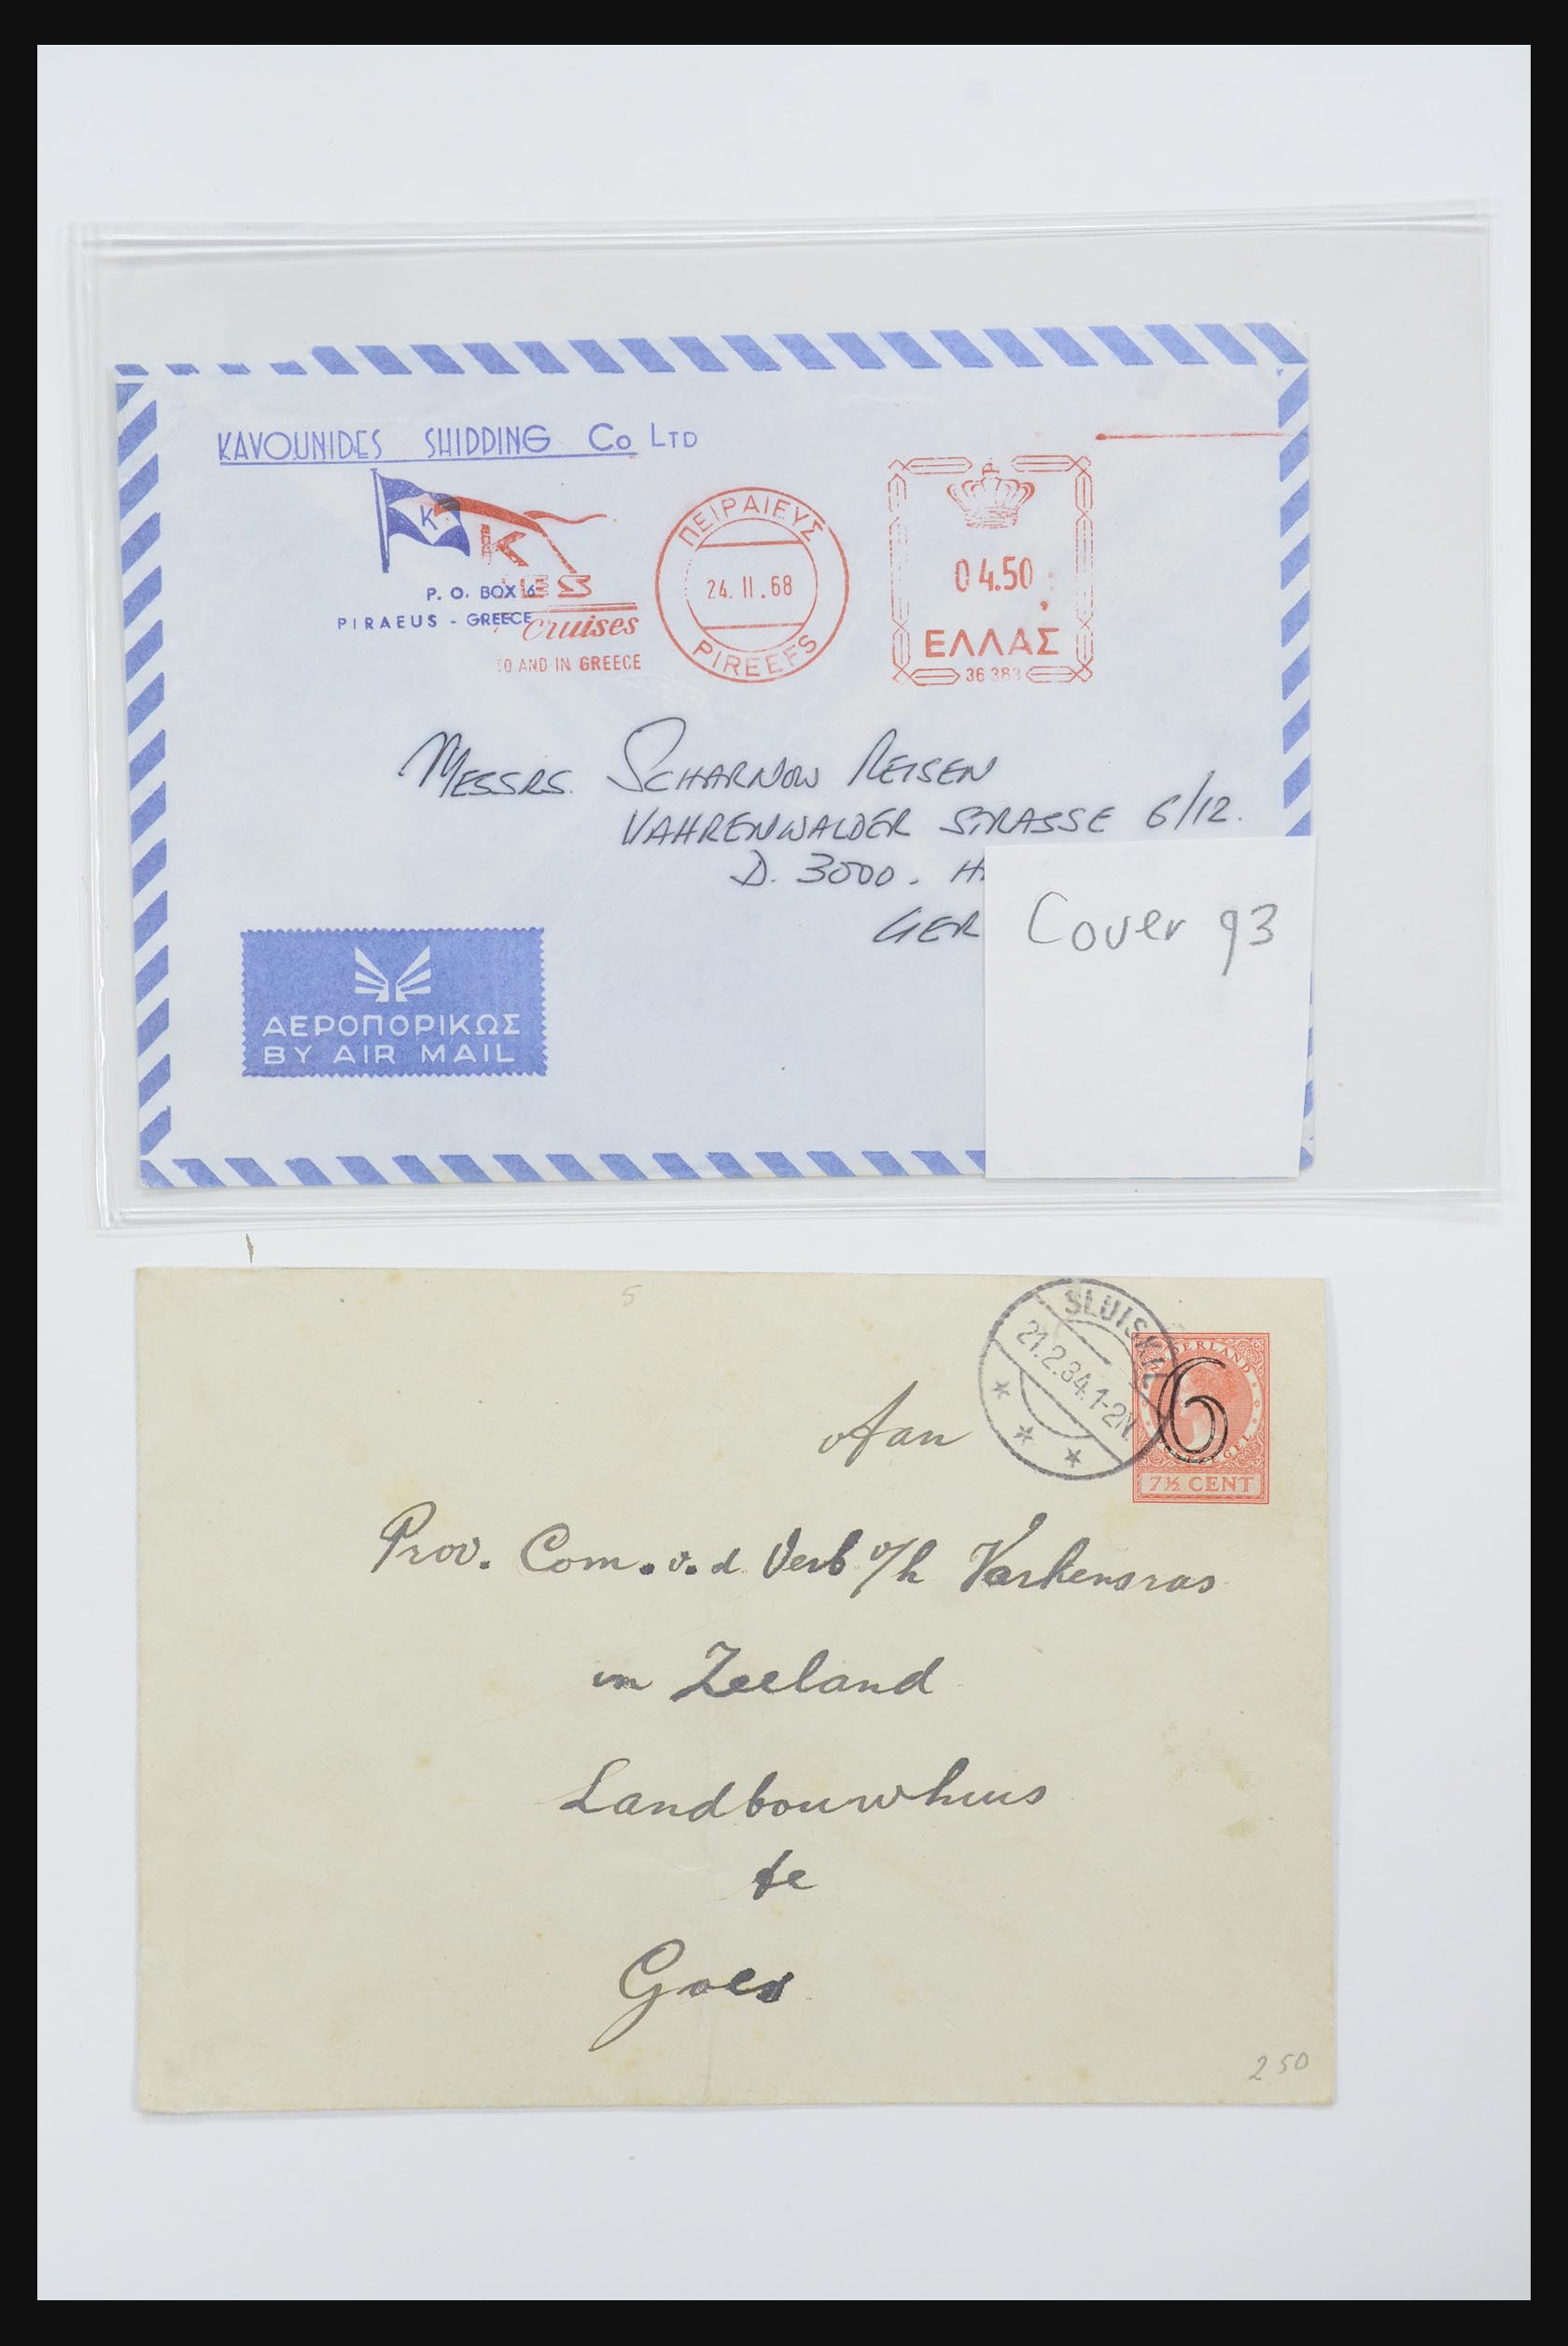 KAVOUNIDES SHIPPING Co LTD
K
K
ES
P. O. BOX 6
PIRAEUS - GREECE
Cruises
TO AND IN GREECE
ΠΕΙΡΑΙΕΥΣ
24. II. 68
PIREEFS
04.50
ΕΛΛΑΣ
36 383
MESSRS. SCHARNOW REISEN
VAHRENWALDER STRASSE 6/12.
D. 3000. H
GER
Cover 93
ΑΕΡΟΠΟΡΙΚΩΣ
BY AIR MAIL
5
SLUISKIL
21.2.34.1-2N.
NEDERLAND
6
7½ CENT
Aan
Prov. Com. v. d Verb v/h Varkensras
in Zeeland
Landbouwhuis
te
Goes
250